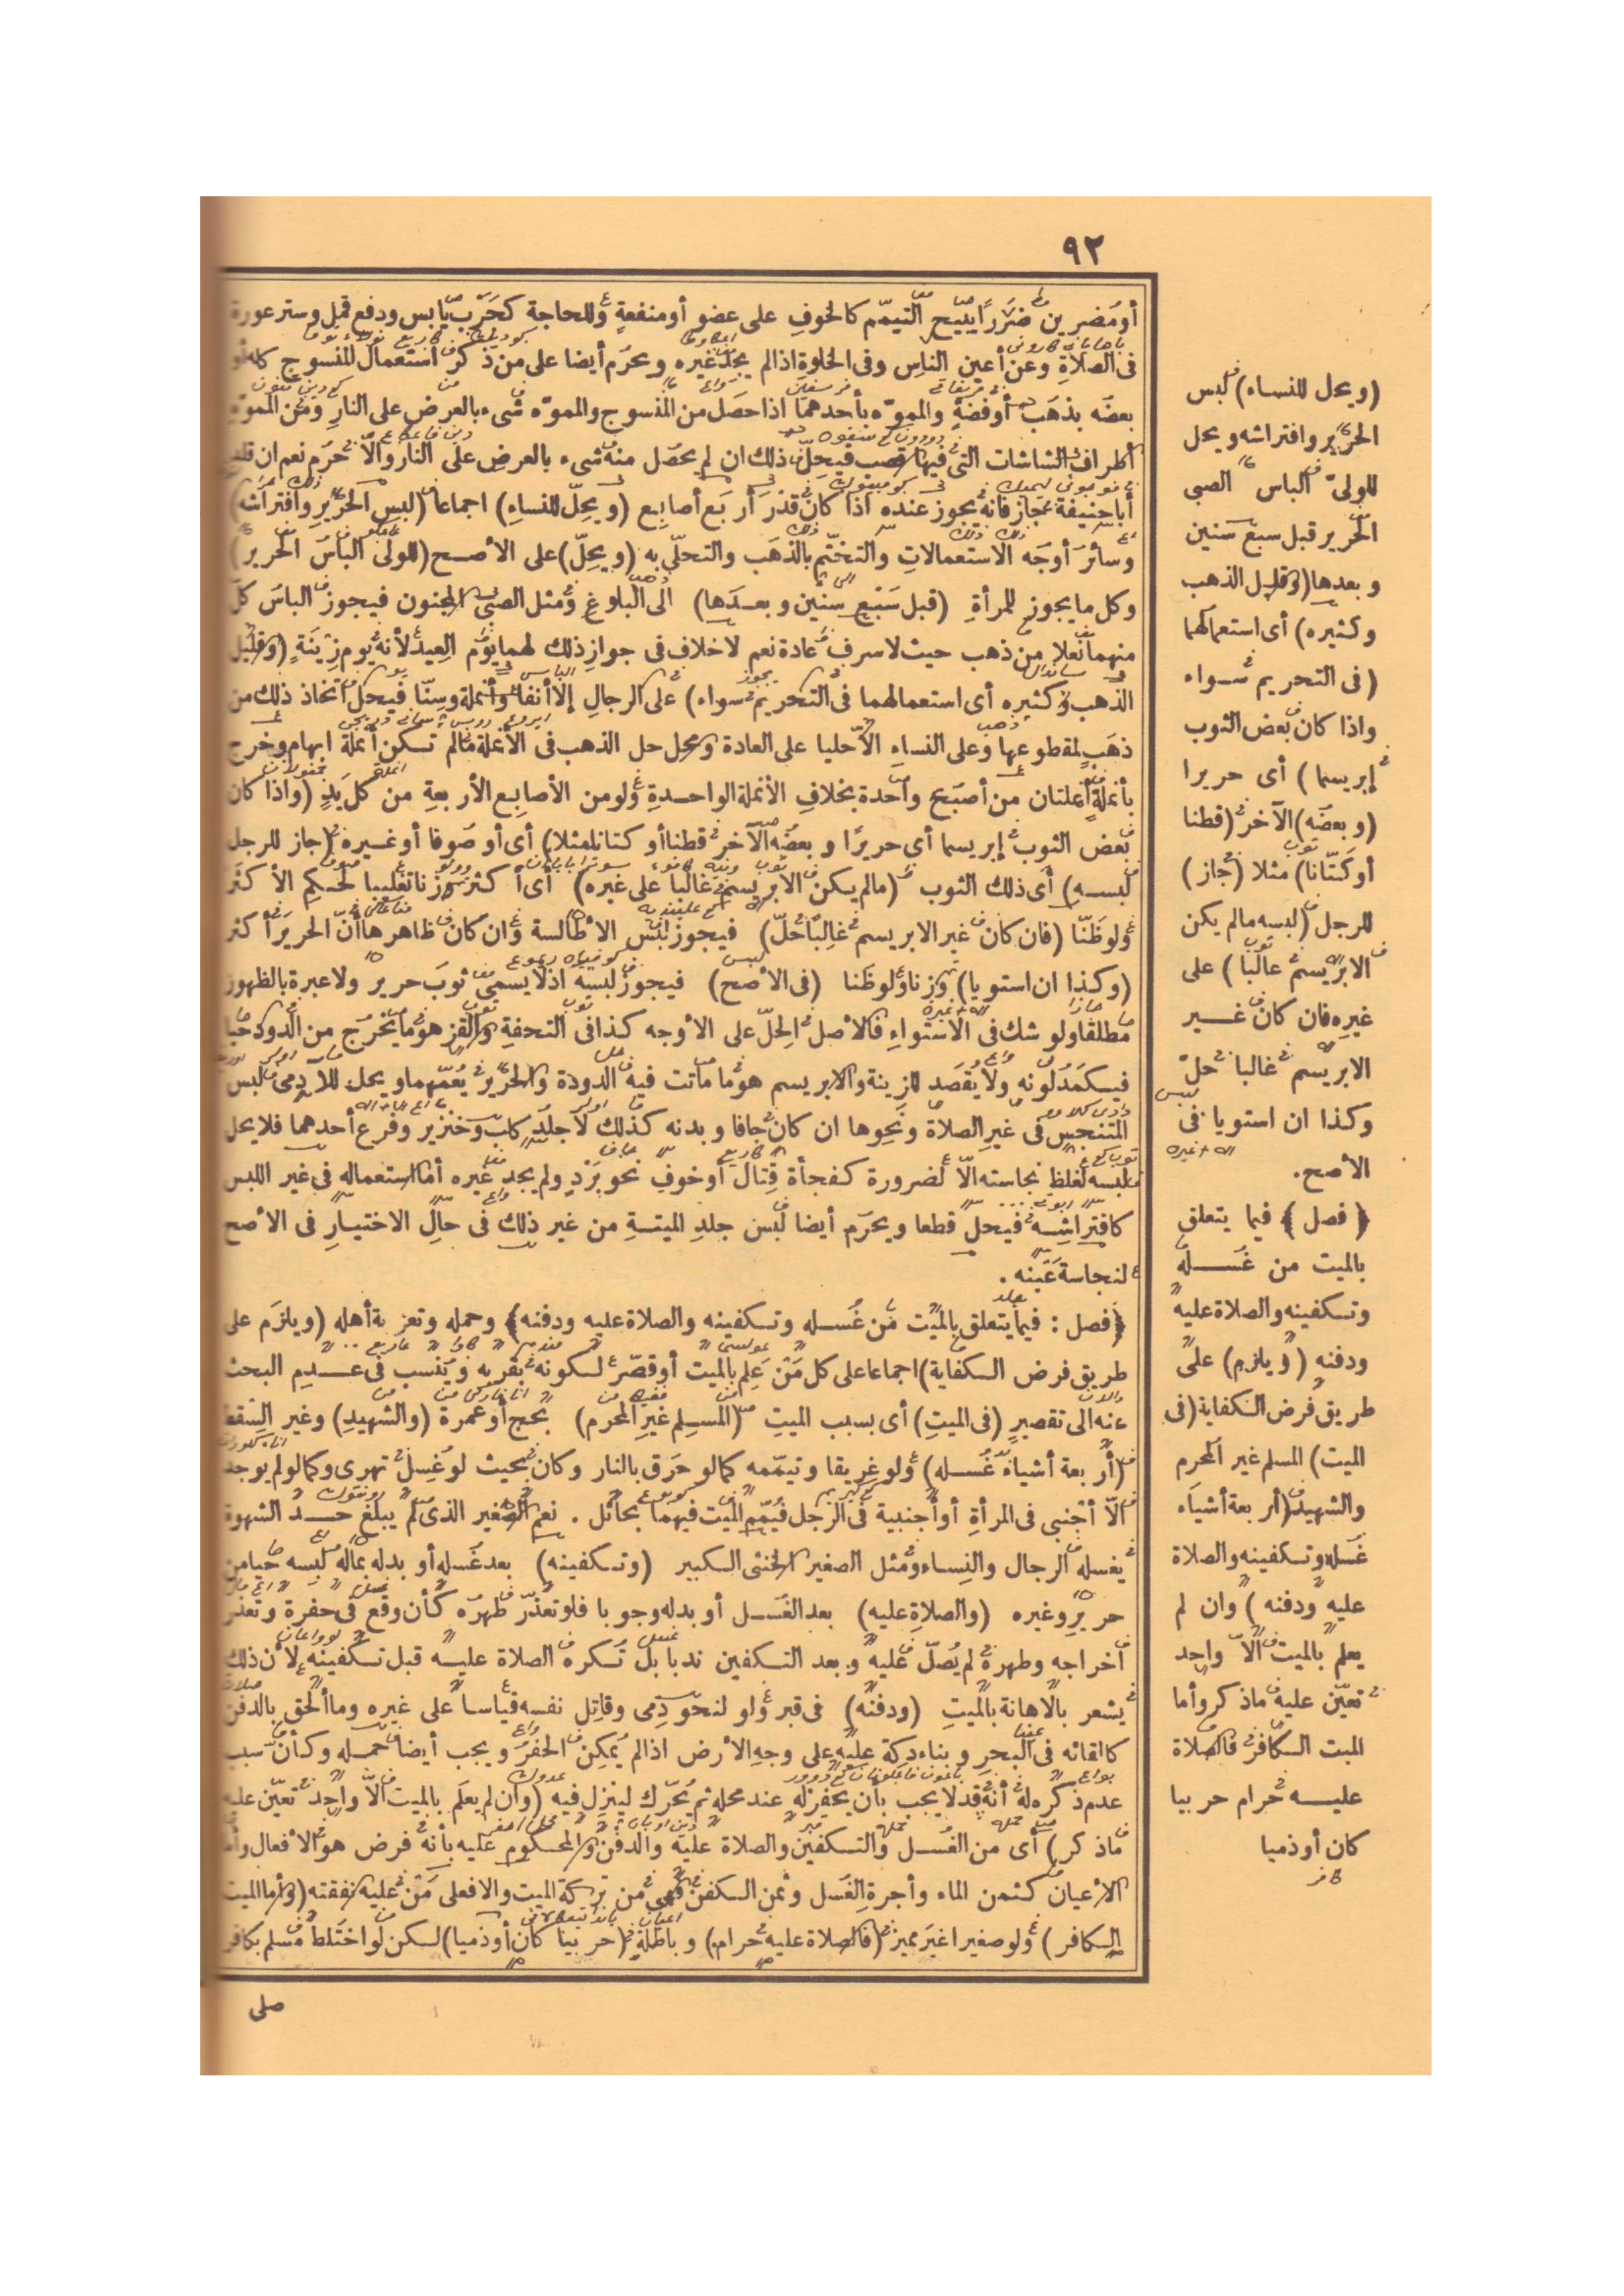 ٩٢
(ويحل للنساء) لبس
الحرير وافتراشه ويحل
للولىّ الباس الصبى
الحرير قبل سبع سنين
وبعدها (وقليل الذهب
وكثيره) أى استعمالهما
(فى التحريم سواء
واذا كان بعض الثوب
إبريسما) أى حريرا
(وبعضه) الآخر (قطنا
أو كتّانا) مثلا (جاز)
للرجل (لبسه مالم يكن
الابريسم غالبا) على
غيره فان كان غير
الابريسم غالبا حلّ
وكذا ان استويا فى
الأصح.
﴿فصل﴾ فيما يتعلق
بالميت من غسله
وتكفينه والصلاة عليه
ودفنه (ويلزم) على
طريق فرض الكفاية (فى
الميت) المسلم غير المحرم
والشهيد (أربعة أشياء
غسله وتكفينه والصلاة
عليه ودفنه) وان لم
يعلم بالميت الاّ واحد
تعيّن عليه ماذكر وأما
الميت الكافر فالصلاة
عليه حرام حربيا
كان أو ذميا
أو مضرين ضررا يبيح التيمّم كالخوف على عضو أو منفعة وللحاجة كجرب يابس ودفع قمل وستر عورة
فى الصلاة وعن أعين الناس وفى الخلوة اذا لم يجد غيره ويحرم أيضا على من ذكر استعمال المنسوج كله أو
بعضه بذهب أو فضة والمموّه بأحدهما اذا حصل من المنسوج والمموّه شىء بالعرض على النار ومن المموّه
أطراف الشاشات التى فيها قصب فيحلّ ذلك ان لم يحصل منه شىء بالعرض على النار والاّ حرم نعم ان قلد
أباحنيفة جاز فانه يجوز عنده اذا كان قدر أربع أصابع (ويحلّ للنساء) اجماعا (لبس الحرير وافتراشه)
وسائر أوجه الاستعمالات والتختّم بالذهب والتحلّى به (ويحلّ) على الأصح (للولى الباس الحرير)
وكل ما يجوز للمرأة (قبل سبع سنين وبعدها) الى البلوغ ومثل الصبى المجنون فيجوز الباس كل
منهما نعلا من ذهب حيث لا سرف عادة نعم لا خلاف فى جواز ذلك لهما يوم العيد لأنه يوم زينة (وقليل
الذهب وكثيره أى استعمالهما فى التحريم سواء) على الرجال إلا أنفا وأنملة وسنّا فيحل اتخاذ ذلك من
ذهب لمقطوعها وعلى النساء الاّ حليا على العادة ومحل حل الذهب فى الأنملة مالم تكن أنملة ابهام وخرج
بأنملة أنملتان من أصبع واحدة بخلاف الأنملة الواحدة ولو من الأصابع الأربعة من كل يد (واذا كان
بعض الثوب إبريسما أى حريرا وبعضه الآخر قطنا أو كتانا مثلا) أى أو صوفا أو غيره (جاز للرجل
لبسه) أى ذلك الثوب (مالم يكن الابريسم غالبا على غيره) أى أكثر وزنا تغليبا لحكم الأكثر
ولو ظنّا (فان كان غير الابريسم غالبا حلّ) فيجوز لبس الاطالسة وان كان ظاهرها أنّ الحرير أكثر
(وكذا ان استويا) وزنا ولو ظنا (فى الأصح) فيجوز لبسه اذ لا يسمى ثوب حرير ولا عبرة بالظهور
مطلقا ولو شك فى الاستواء فالأصل الحلّ على الأوجه كذا فى التحفة والقز هو ما يخرج من الدود حيا
فيكمد لونه ولا يقصد للزينة والابريسم هو ما ماتت فيه الدودة والحرير يعمّهما ويحل للادمى لبس
المتنجس فى غير الصلاة ونحوها ان كان جافا وبدنه كذلك لا جلد كلب وخنزير وفرع أحدهما فلا يحل
لبسه لغلظ نجاسته الاّ لضرورة كفجأة قتال أو خوف نحو برد ولم يجد غيره أما استعماله فى غير اللبس
كافتراشه فيحل قطعا ويحرم أيضا لبس جلد الميتة من غير ذلك فى حال الاختيار فى الأصح
لنجاسة عينه.
﴿فصل: فيما يتعلق بالميت من غسله وتكفينه والصلاة عليه ودفنه﴾ وحمله وتعزية أهله (ويلزم على
طريق فرض الكفاية) اجماعا على كل من علم بالميت أو قصّر لكونه بقربه وينسب فى عديم البحث
عنه الى تقصير (فى الميت) أى بسبب الميت (المسلم غير المحرم) بحج أو عمرة (والشهيد) وغير السقط
(أربعة أشياء غسله) ولو غريقا وتيمّمه كما لو حرق بالنار وكان بحيث لو غسل تهرى وكما لو لم يوجد
الاّ أجنبى فى المرأة أو أجنبية فى الرجل فيمّم الميت فيهما بحائل. نعم الصغير الذى لم يبلغ حد الشهوة
يغسله الرجال والنساء ومثل الصغير الخنثى الكبير (وتكفينه) بعد غسله أو بدله بماله لبسه حيا من
حرير وغيره (والصلاة عليه) بعد الغسل أو بدله وجوبا فلو تعذّر طهره كأن وقع فى حفرة وتعذر
اخراجه وطهره لم يصلّ عليه وبعد التكفين ندبا بل تكره الصلاة عليه قبل تكفينه لأن ذلك
يشعر بالاهانة بالميت (ودفنه) فى قبر ولو لنحو ذمى وقاتل نفسه قياسا على غيره وما ألحق بالدفن
كالقائه فى البحر وبناء دكة عليه على وجه الأرض اذا لم يمكن الحفر ويجب أيضا حمله وكأن سبب
عدم ذكره له أنه قد لا يجب بأن يحفر له عند محله ثم يحرّك لينزل فيه (وان لم يعلم بالميت الاّ واحد تعيّن عليه
ماذكر) أى من الغسل والتكفين والصلاة عليه والدفن والمحكوم عليه بأنه فرض هو الأفعال وأما
الأعيان كثمن الماء وأجرة الغسل وثمن الكفن فهى من تركة الميت والا فعلى من عليه نفقته (وأما الميت
الكافر) ولو صغيرا غير مميز (فالصلاة عليه حرام) وباطلة (حربيا كان أو ذميا) لكن لو اختلط مسلم بكافر
صلى